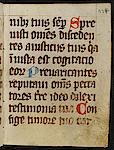 nibi tuis sep Spre
uisti omēs disceden
res aiustitiis tuis qa
iniusta est cogitatio
eor Preuaricantes
reputaui omīs pecca
tores tre ideo dilexi
testimonia tua Con
fige timore tuo car